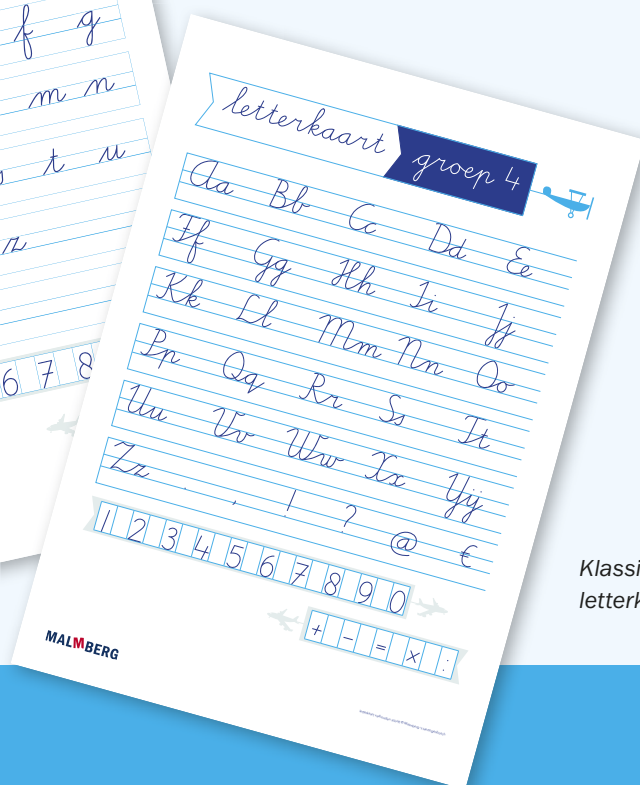 f g
m n
t u
z
6 7 8
letterkaart groep 4
Aa Bb Cc Dd Ee
Ff Gg Hh Ii Jj
Kk Ll Mm Nn Oo
Pp Qq Rr Ss Tt
Uu Vv Ww Xx Yÿ
Zz . , ! ? @ €
1 2 3 4 5 6 7 8 9 0
+ - = x :
MALMBERG
Klassi
letterk